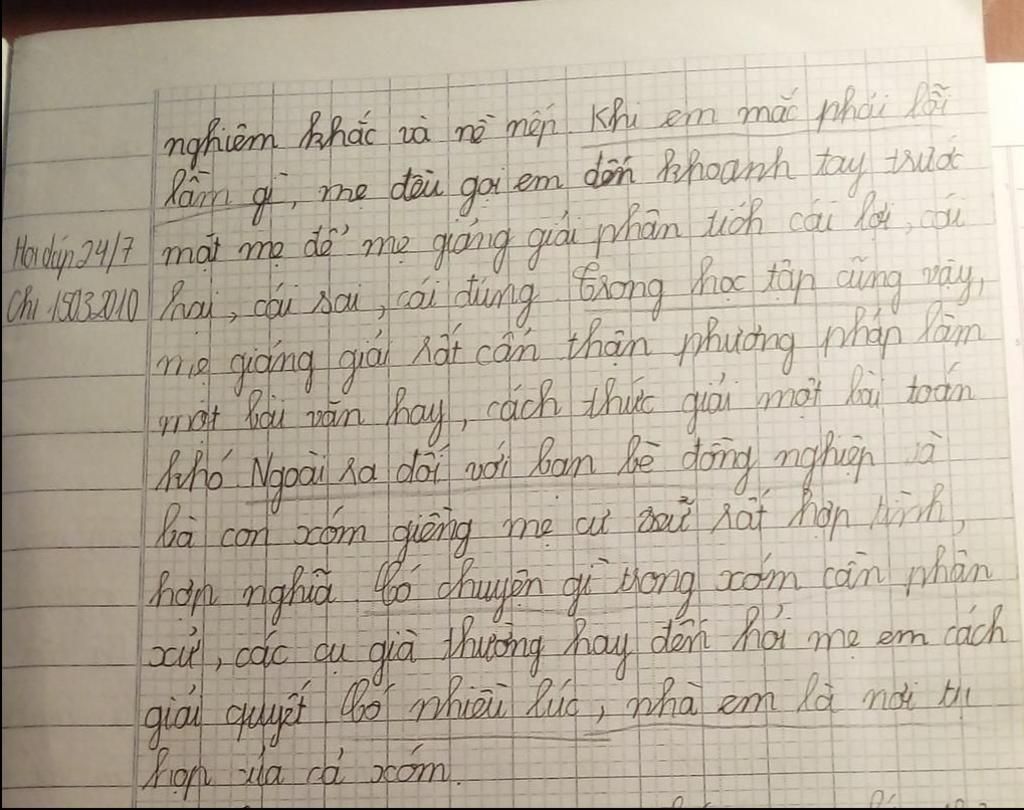 nghiêm khắc và nề nếp. Khi em mắc phải lỗi
lầm gì, mẹ đều gọi em đến khoanh tay trước
mặt mẹ để mẹ giảng giải phân tích cái lợi, cái
hại, cái sai, cái đúng. Trong học tập cũng vậy,
mẹ giảng giải rất cẩn thận phương pháp làm
một bài văn hay, cách thức giải một bài toán
khó. Ngoài ra đối với bạn bè đồng nghiệp và
bà con xóm giềng mẹ cư xử rất hợp tình,
hợp nghĩa. Có chuyện gì trong xóm cần phân
xử, các cụ già thường hay đến hỏi mẹ em cách
giải quyết. Có nhiều lúc, nhà em là nơi tụ
họp của cả xóm.
Hỏi đáp 24/7
Chi 15032010